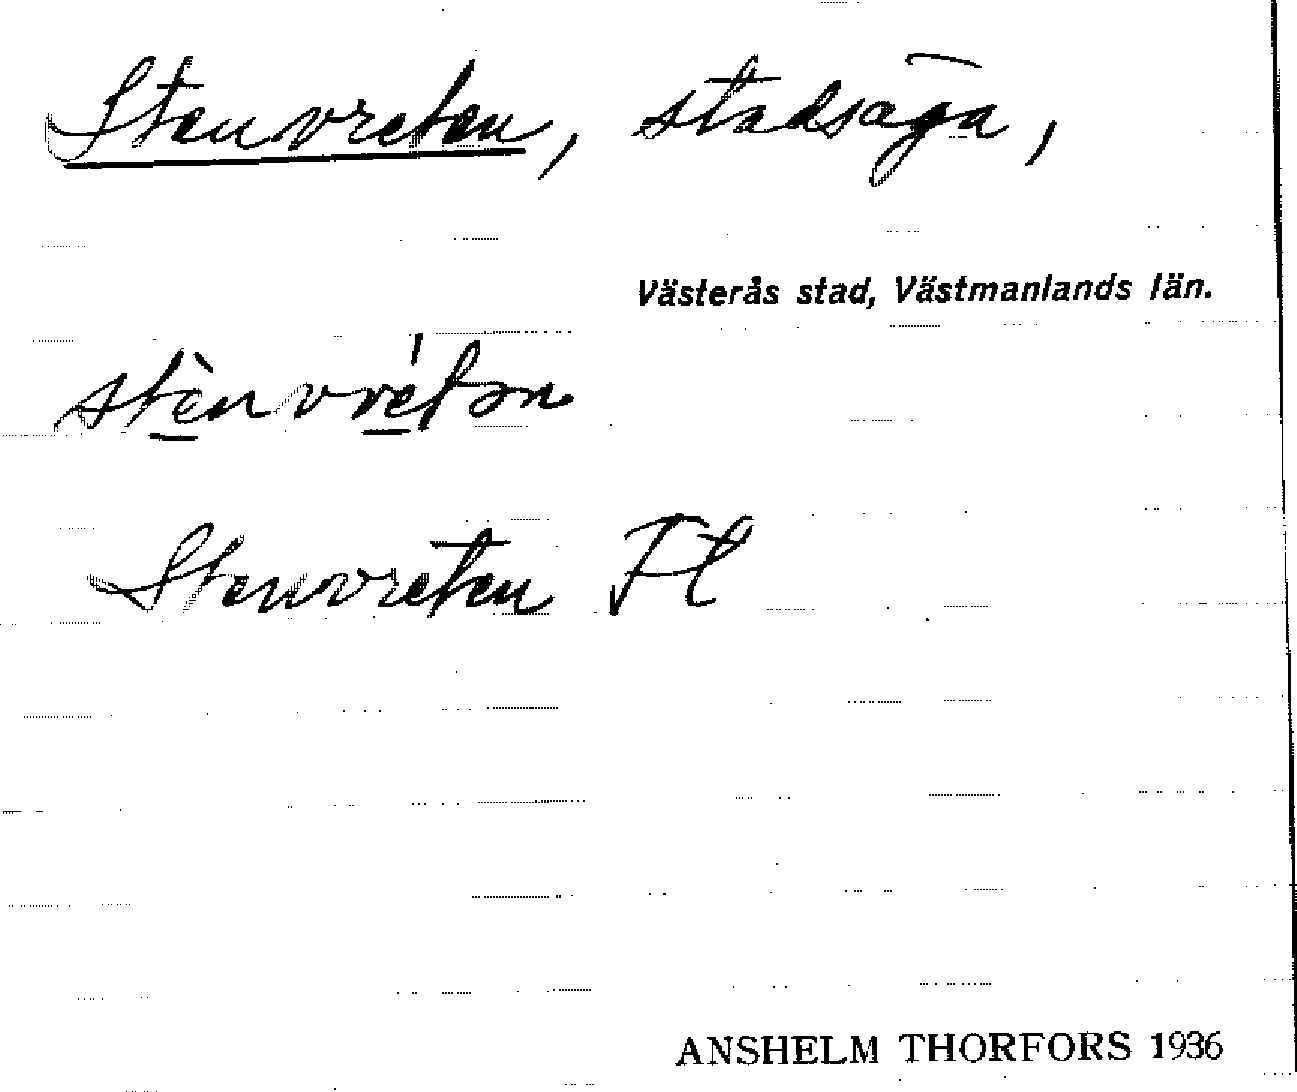 Stenvreten, stadsäga,
Västerås stad, Västmanlands län.
stènvrétən
Stenvreten
ANSHELM THORFORS 1936